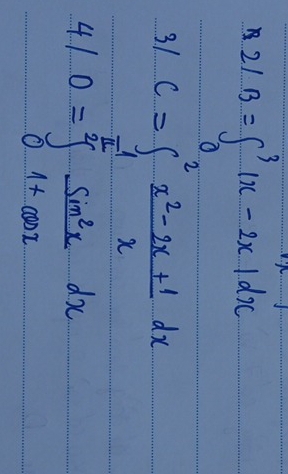 2/ B = ∫₀³ |x - 2x| dx
3/ C = ∫₁² (x² - 2x + 1)/x dx
4/ D = ∫₀^(π/2) (sin²x)/(1 + cosx) dx